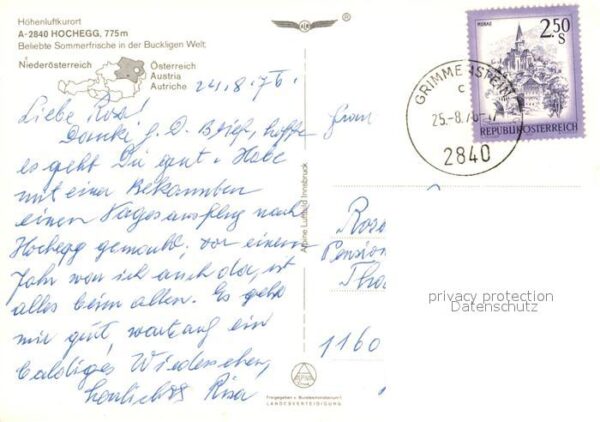 Höhenluftkurort
A-2840 HOCHEGG, 775m
Beliebte Sommerfrische in der Buckligen Welt
Niederösterreich
Österreich
Austria
Autriche
24.8.76.
Liebe Rosa!
Danke f. D. Brief, hoffe
es geht Dir gut. Habe
mit einer Bekannten
einen Tagesausflug nach
Hochegg gemacht, vor einem
Jahr war ich auch da, ist
alles beim alten. Es geht
mir gut, wart auf ein
baldiges Wiedersehen,
herzlichst Risa
Alpine Luftbild Innsbruck
Freigegeben v. Bundesministerium f.
LANDESVERTEIDIGUNG
MURAU
2.50
S
REPUBLIK ÖSTERREICH
GRIMMENSTEIN
c
25.-8.76
2840
Frau
Rosa
Pension
1160
privacy protection
Datenschutz